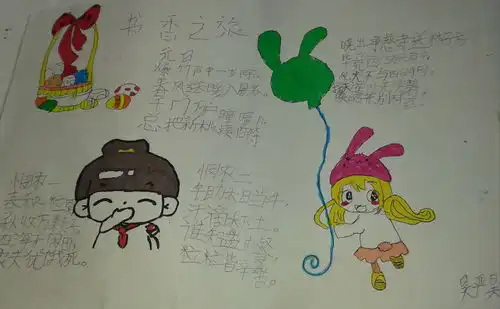 书香之旅
元日
爆竹声中一岁除,
春风送暖入屠苏
千门万户曈曈日,
总把新桃换旧符
晓出净慈寺送林子方
毕竟西湖六月中
风光不与四时同。
悯农一
春种一粒
秋收万
四海无闲田,
农夫犹饿死。
悯农二
锄禾日当午,
汗滴禾下土。
谁知盘中餐
粒粒皆辛苦。